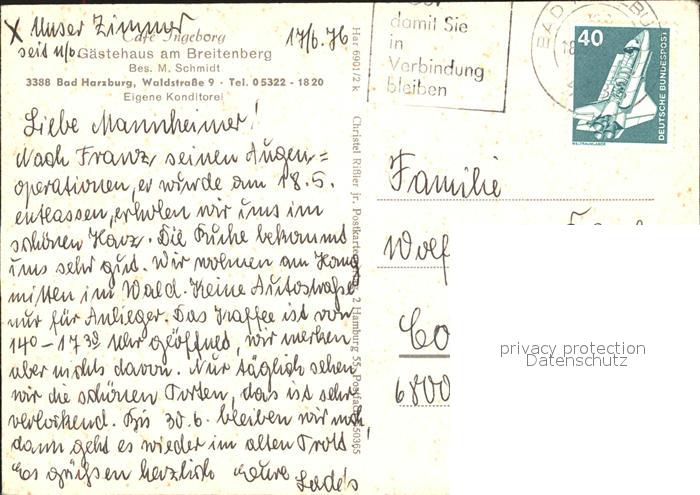 X Unser Zimmer
17/6.76
Café Ingeborg
Gästehaus am Breitenberg
Bes. M. Schmidt
3388 Bad Harzburg, Waldstraße 9 · Tel. 05322 - 1820
Eigene Konditorei
Liebe Mannheimer!
Nach Franz, seinen Augen=
operationen, er wurde am 18.5.
entlassen, erholen wir uns im
schönen Harz. Die Ruhe bekommt
uns sehr gut. Wir wohnen am Hang
mitten im Wald. Keine Autostraße
nur für Anlieger. Das Kaffee ist von
14⁰ - 17³⁰ Uhr geöffnet, wir merken
aber nichts davon. Nur täglich sehen
wir die schönen Torten, das ist sehr
verlockend. Bis 30.6. bleiben wir noch
dann geht es wieder im alten Trott!
Es grüßen herzlich Eure
Lade's
Har 6901/2 k
Christel Rißler jr. 2 Hamburg 55, 50365
damit Sie
in
Verbindung
bleiben
BAD
18
40
DEUTSCHE BUNDESPOST
WELTRAUMLABOR
Familie
Wolf
6800
privacy protection
Datenschutz